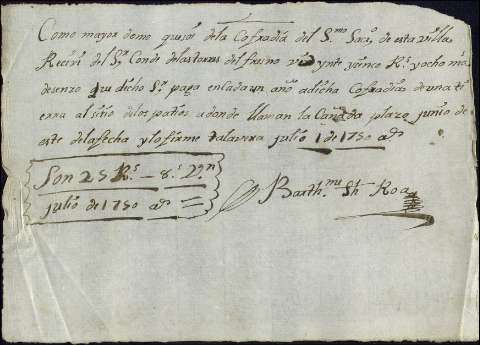 Como mayor domo que soi de la Cofradia del S.mo Sacr.o de esta villa
Recivi del S.r Conde de las torres del fresno veynte y cinco R.s y ocho m.s
de senzo que dicho S.r paga en cada un año a dicha Cofradia de una ti
erra al sitio de los patios a donde llaman la Cañada plazo junio de
este de la fecha y lo firme talavera julio 1 de 1750 a.s
Son 25 R.s — 8.s
julio de 1750 a.s
Barth.me Roa